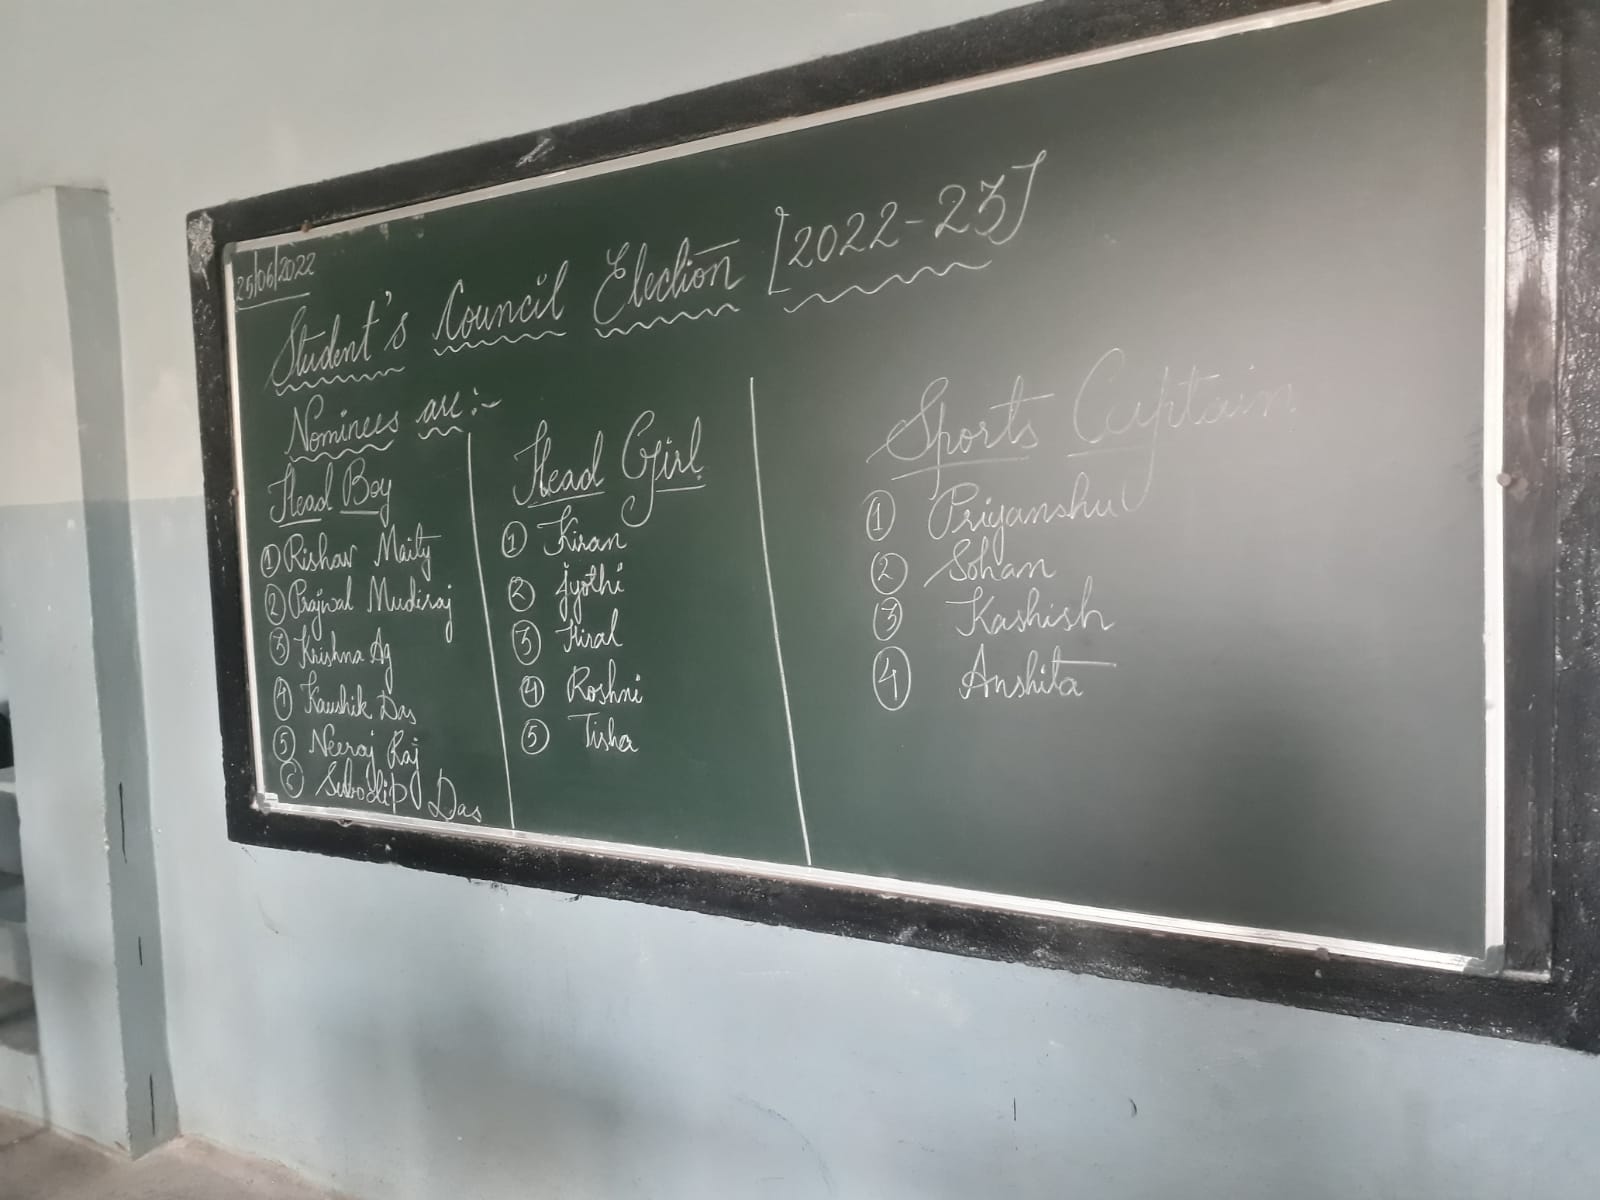 25/06/2022
Student's Council Election [2022-23]
Nominees are :-
Head Boy
① Rishav Maity
② Prajwal Mudiraj
③ Krishna Ag
④ Kaushik Das
⑤ Neeraj Raj
⑥ Subodip Das
Head Girl
① Kiran
② Jyothi
③ Hiral
④ Roshni
⑤ Tisha
Sports Captain
① Priyanshu
② Soham
③ Kashish
④ Anshita